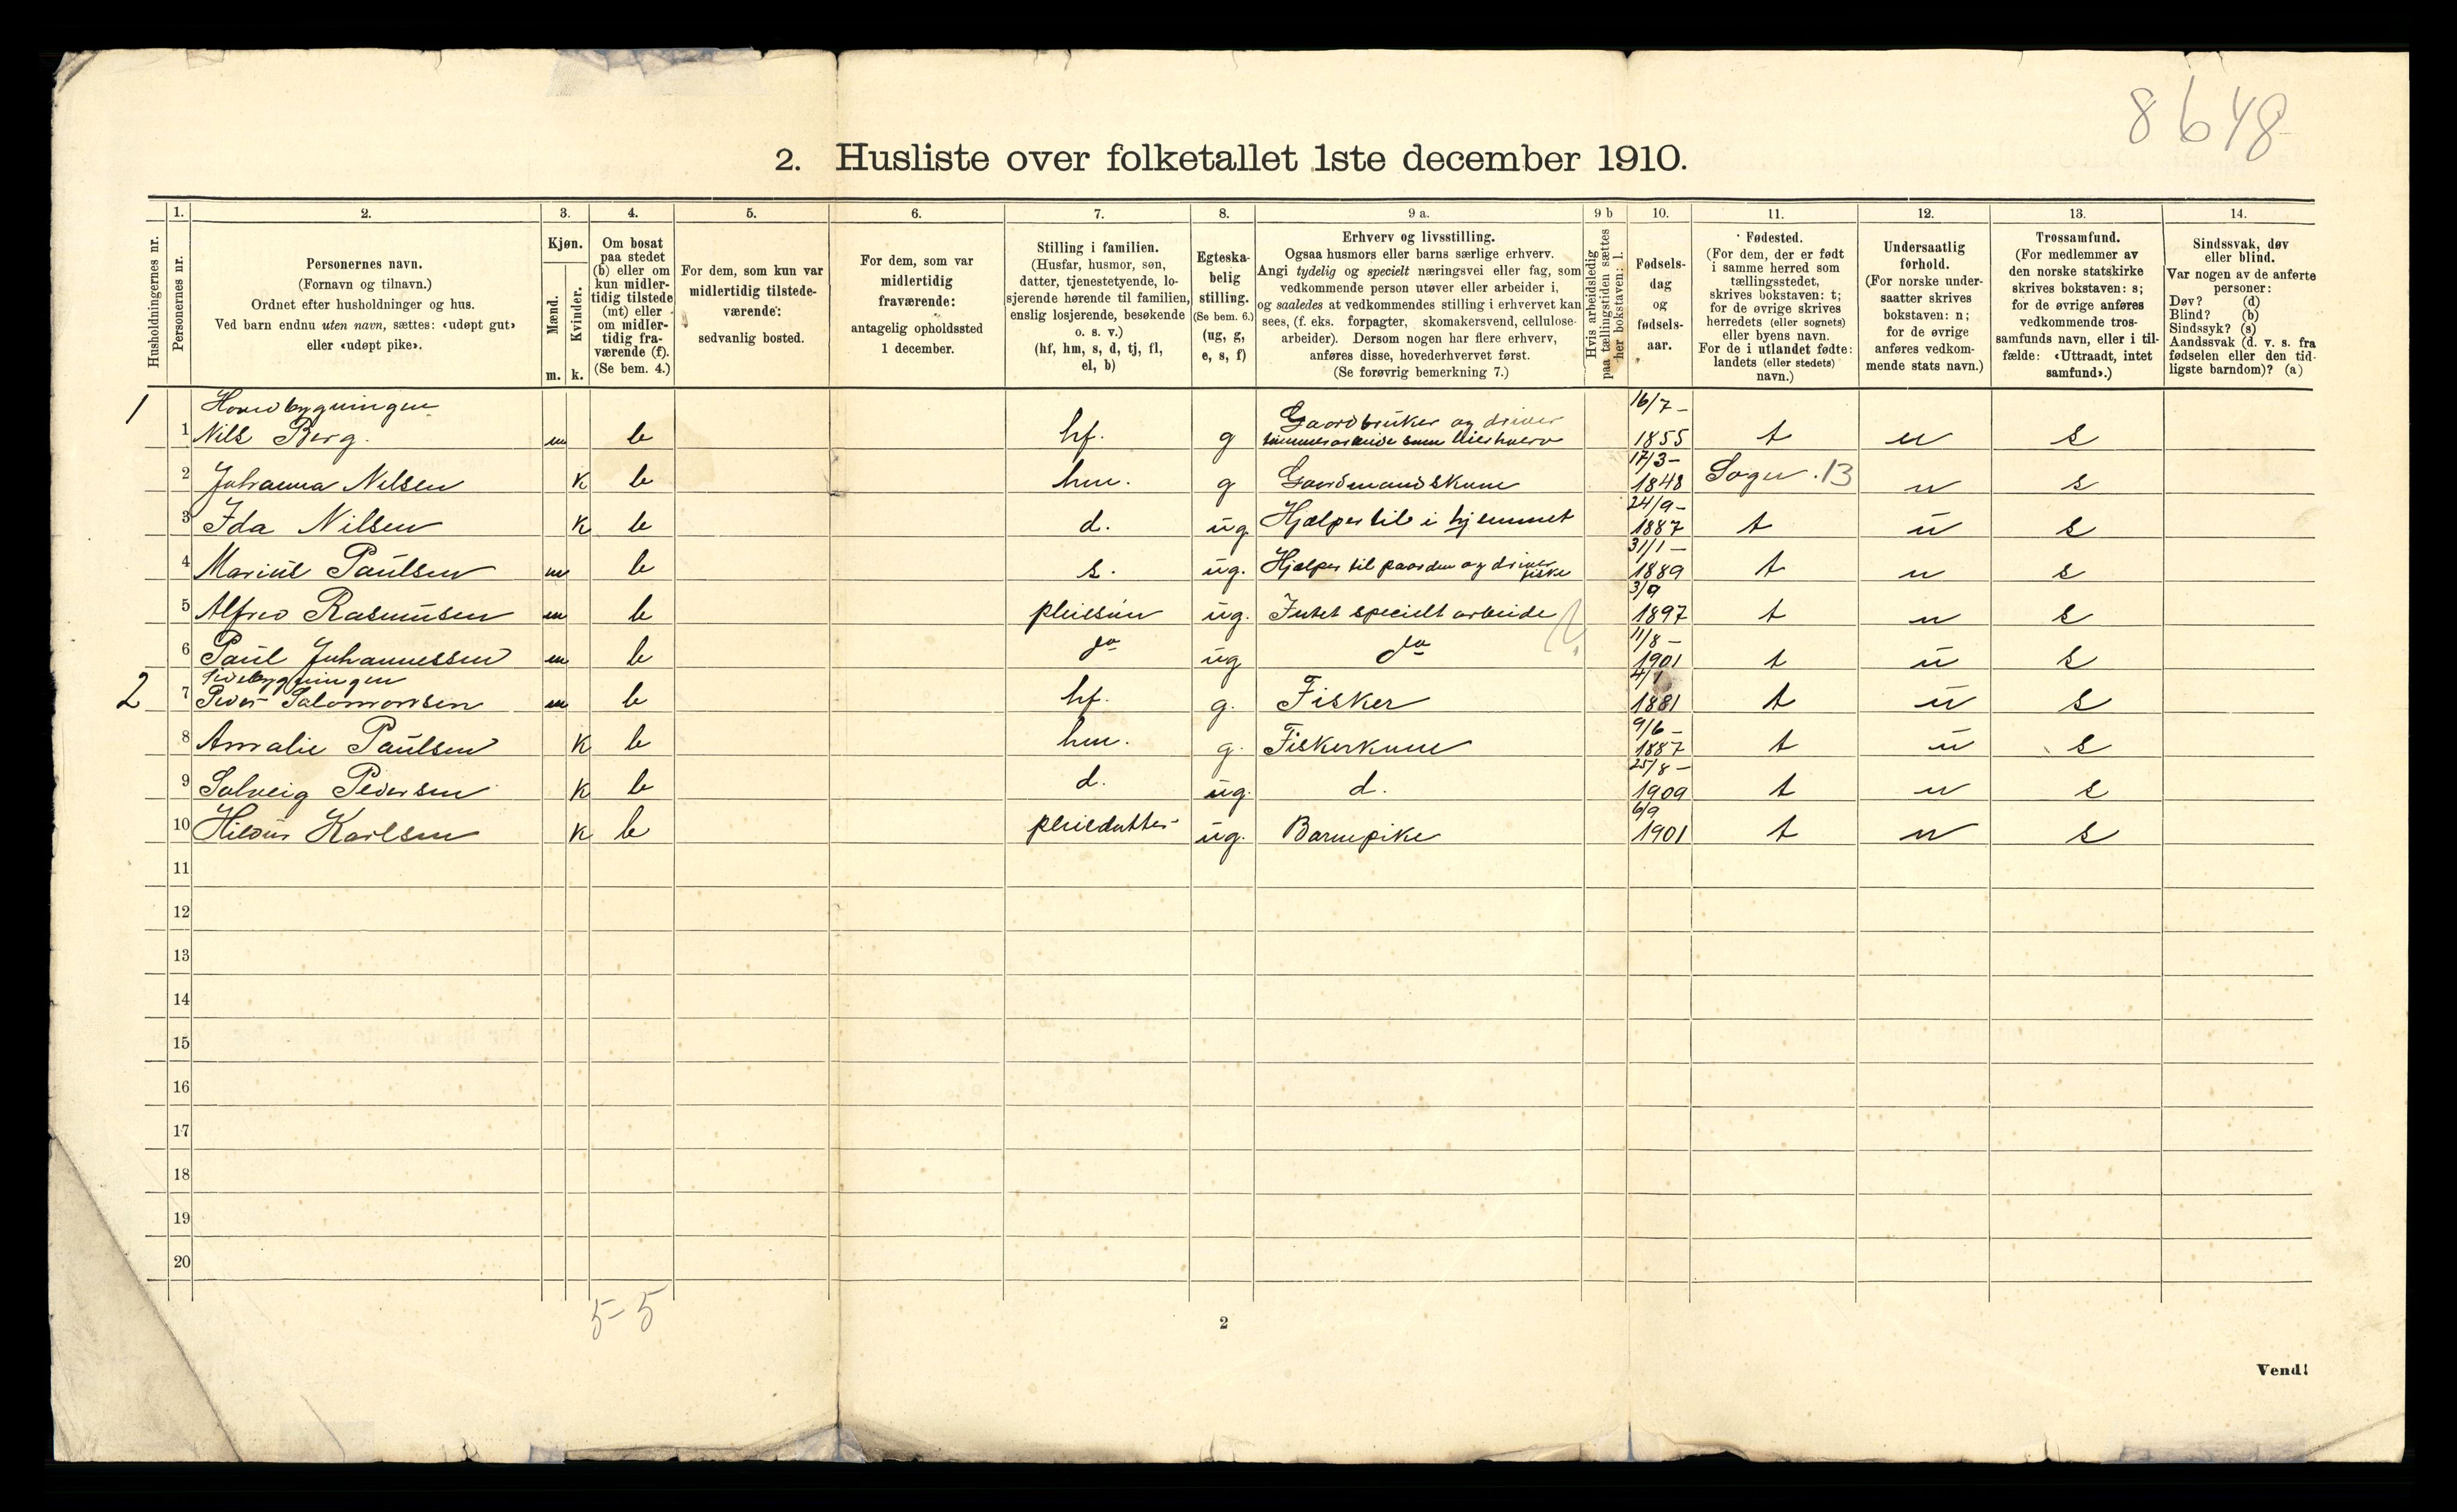 8648
2. Husliste over folketallet 1ste december 1910.
Husholdningernes nr.
1. Personernes nr.
2. Personernes navn.
(Fornavn og tilnavn.)
Ordnet efter husholdninger og hus.
Ved barn endnu uten navn, sættes: «udøpt gut»
eller «udøpt pike».
3. Kjøn.
Mænd. m.
Kvinder. k.
4. Om bosat
paa stedet
(b) eller om
kun midler-
tidig tilstede
(mt) eller
om midler-
tidig fra-
værende (f).
(Se bem. 4.)
5. For dem, som kun var
midlertidig tilstede-
værende:
sedvanlig bosted.
6. For dem, som var
midlertidig
fraværende:
antagelig opholdssted
1 december.
7. Stilling i familien.
(Husfar, husmor, søn,
datter, tjenestetyende, lo-
sjerende hørende til familien,
enslig losjerende, besøkende
o. s. v.)
(hf, hm, s, d, tj, fl,
el, b)
8. Egteska-
belig
stilling.
(Se bem. 6.)
(ug, g,
e, s, f)
9 a. Erhverv og livsstilling.
Ogsaa husmors eller barns særlige erhverv.
Angi tydelig og specielt næringsvei eller fag, som
vedkommende person utøver eller arbeider i,
og saaledes at vedkommendes stilling i erhvervet kan
sees, (f. eks. forpagter, skomakersvend, cellulose-
arbeider). Dersom nogen har flere erhverv,
anføres disse, hovederhvervet først.
(Se forøvrig bemerkning 7.)
9 b Hvis arbeidsledig
paa tællingstiden sættes
her bokstaven: l.
10. Fødsels-
dag
og
fødsels-
aar.
11. Fødested.
(For dem, der er født
i samme herred som
tællingsstedet,
skrives bokstaven: t;
for de øvrige skrives
herredets (eller sognets)
eller byens navn.
For de i utlandet fødte:
landets (eller stedets)
navn.)
12. Undersaatlig
forhold.
(For norske under-
saatter skrives
bokstaven: n;
for de øvrige
anføres vedkom-
mende stats navn.)
13. Trossamfund.
(For medlemmer av
den norske statskirke
skrives bokstaven: s;
for de øvrige anføres
vedkommende tros-
samfunds navn, eller i til-
fælde: «Uttraadt, intet
samfund».)
14. Sindssvak, døv
eller blind.
Var nogen av de anførte
personer:
Døv? (d)
Blind? (b)
Sindssyk? (s)
Aandssvak (d. v. s. fra
fødselen eller den tid-
ligste barndom)? (a)
Hovedbygningen
1 1 Nils Berg. m b hf. g Gaardbruker og driver tømmerarbeide som bierhverv 16/7- 1855 t n s
2 Johanna Nilsen k b hm. g Gaardmandskone 17/3- 1848 Sogn. 13 n s
3 Ida Nilsen k b d. ug Hjælper til i hjemmet 24/9- 1887 t n s
4 Marius Paulsen m b s. ug. Hjælper til paa og driver fiske 31/1- 1889 t n s
5 Alfred Rasmusen m b pleiesøn ug. Intet specielt arbeide 3/9 1897 t n s
6 Paul Johannessen m b do ug do 11/8- 1901 t n s
Sidebygningen
2 7 Peder Salomonsen m b hf. g. Fisker 4/1 1881 t n s
8 Amalie Paulsen k b hm. g. Fiskerkone 9/6- 1887 t n s
9 Solveig Pedersen k b d. ug. d. 25/8- 1909 t n s
10 Hildur Karlsen k b pleiedatter ug. Barnepike 6/9 1901 t n s
11
12
13
14
15
16
17
18
19
20
5-5
2
Vend!